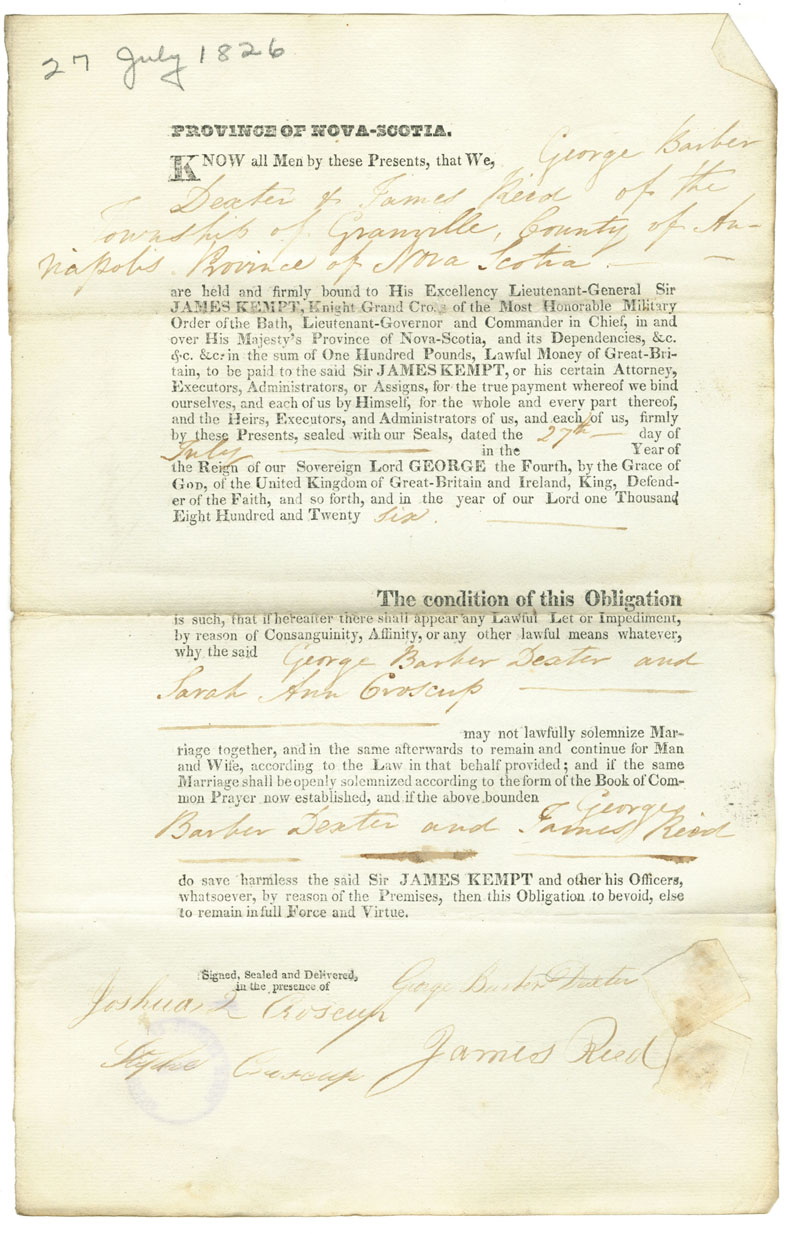 27 July 1826
PROVINCE OF NOVA-SCOTIA.
KNOW all Men by these Presents, that We, George Barber
Dexter & James Reed of the
Township of Granville, County of An-
napolis Province of Nova Scotia —
are held and firmly bound to His Excellency Lieutenant-General Sir
JAMES KEMPT, Knight Grand Cross of the Most Honorable Military
Order of the Bath, Lieutenant-Governor and Commander in Chief, in and
over His Majesty's Province of Nova-Scotia, and its Dependencies, &c.
&c. &c. in the sum of One Hundred Pounds, Lawful Money of Great-Bri-
tain, to be paid to the said Sir JAMES KEMPT, or his certain Attorney,
Executors, Administrators, or Assigns, for the true payment whereof we bind
ourselves, and each of us by Himself, for the whole and every part thereof,
and the Heirs, Executors, and Administrators of us, and each of us, firmly
by these Presents, sealed with our Seals, dated the 27th — day of
July — in the Year of
the Reign of our Sovereign Lord GEORGE the Fourth, by the Grace of
GOD, of the United Kingdom of Great-Britain and Ireland, King, Defend-
er of the Faith, and so forth, and in the year of our Lord one Thousand
Eight Hundred and Twenty six. —
The condition of this Obligation
is such, that if hereafter there shall appear any Lawful Let or Impediment,
by reason of Consanguinity, Affinity, or any other lawful means whatever,
why the said George Barber Dexter and
Sarah Ann Croscup —
may not lawfully solemnize Mar-
riage together, and in the same afterwards to remain and continue for Man
and Wife, according to the Law in that behalf provided; and if the same
Marriage shall be openly solemnized according to the form of the Book of Com-
mon Prayer now established, and if the above bounden George
Barber Dexter and James Reed
do save harmless the said Sir JAMES KEMPT and other his Officers,
whatsoever, by reason of the Premises, then this Obligation to be void, else
to remain in full Force and Virtue.
Signed, Sealed and Delivered,
in the presence of
George Barber Dexter
Joshua Croscup
James Reed
Croscup